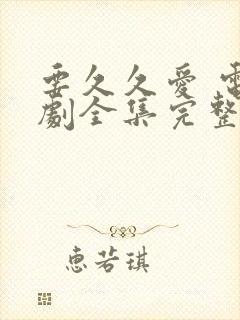 要久久愛 電
劇全集完整
惠若琪